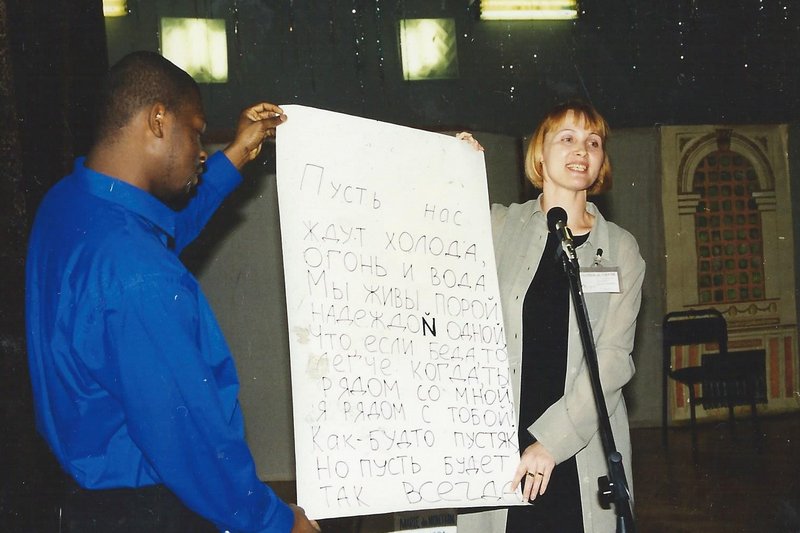 Пусть нас
ждут холода,
огонь и вода
Мы живы порой
надеждой одной,
что если беда то
легче когда ты
рядом со мной,
я рядом с тобой.
Как-будто пустяк
Но пусть будет
так всегда